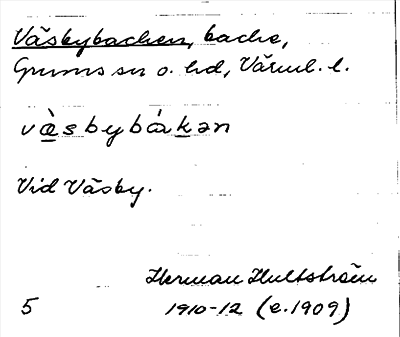 Väsbybacken, backe,
Grums sn o. hd, Värml. l.
vὰsbybákən
Vid Väsby.
Herman Hultström
5 1910-12 (e.1909)